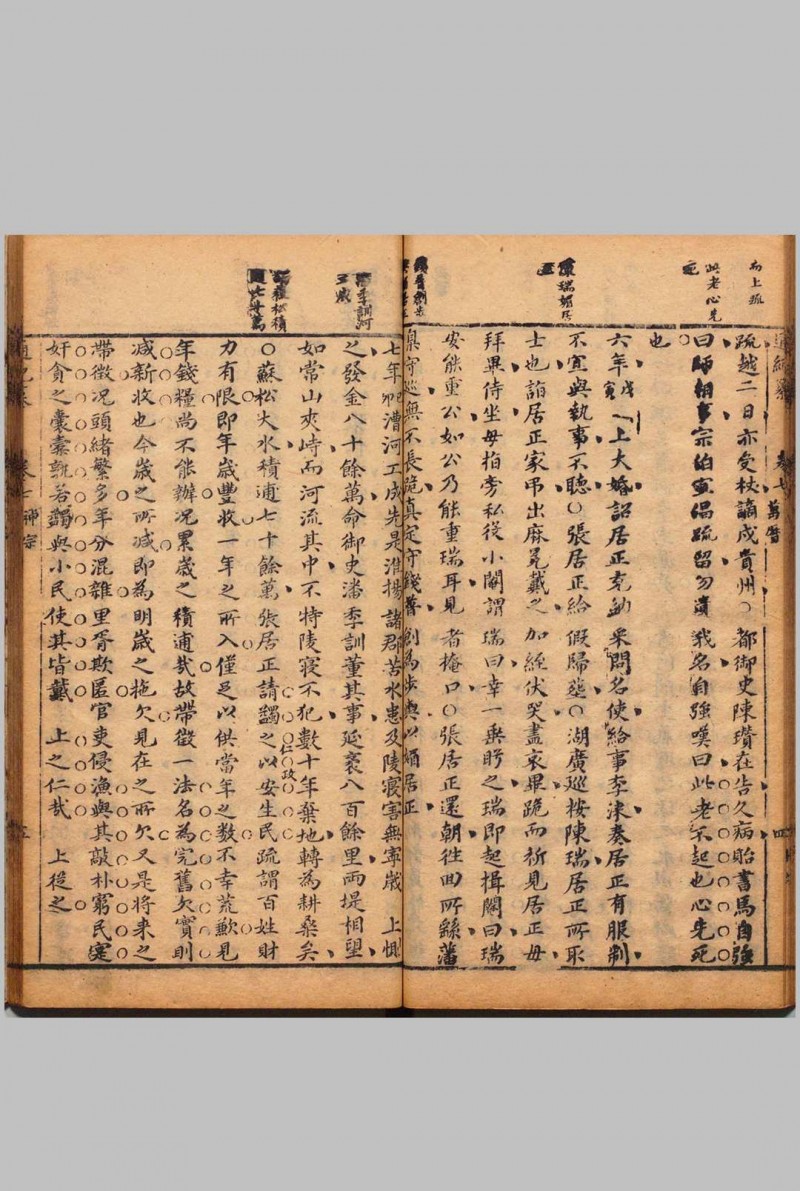 向上疏
此老心先
死
疏越二日亦受杖謫戍貴州○都御史陳瓚在告久病貽書馬自強
曰師相事宗伯宜倡疏留勿遺我名自強嘆曰此老不起也心先死
也
陳瑞媚居
正
六年戊寅上大婚詔居正充納采問名使給事李淶奏居正有服制
不宜與執事不聽○張居正給假歸葬○湖廣巡按陳瑞居正所取
士也詣居正家弔出麻冕戴之加絰伏哭盡哀畢跪而祈見居正母
拜畢侍坐母指旁私役小閹謂瑞曰幸一垂盻之瑞即起揖閹曰瑞
安能重公如公乃能重瑞耳見者掩口○張居正還朝往回所繇藩
臬守巡無不長跪真定守錢普創為步輿以媚居正
潘季訓河
工成
七年己卯漕河工成先是淮揚諸郡苦水患及陵寢害無寧歲上慨
之發金八十餘萬命御史潘季訓董其事延袤八百餘里兩堤相望
如常山夾峙而河流其中不特陵寢不犯數十年棄地轉為耕桑矣
蠲蘇松積
逋七十萬
○蘇松大水積逋七十餘萬張居正請蠲之以安生民疏謂百姓財
仁政
力有限即年歲豐收一年之所入僅足以供當年之数不幸荒歉見
年錢糧尚不能辦况累歲之積逋哉故帶徵一法名為完舊欠實則
减新收也今歲之所减即為明歲之拖欠見在之所欠又是將来之
帶徵况頭緒繁多年分混雜里胥欺匿官吏侵漁與其敲朴窮民寔
奸貪之囊橐孰若蠲與小民使其皆戴上之仁哉上從之
卷七神宗